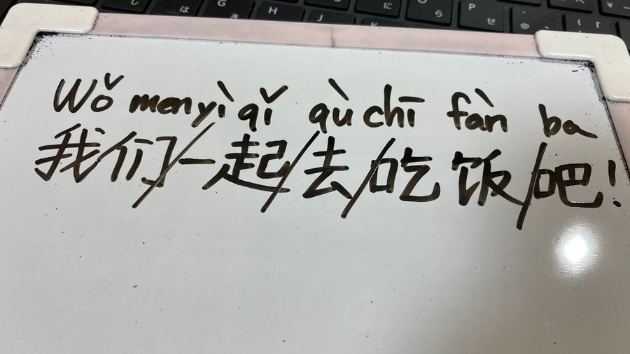 Wǒ men yì qǐ qù chī fàn ba
我们/一起/去/吃饭/吧!